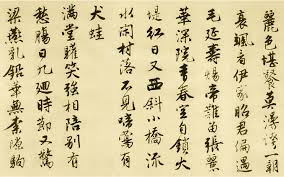 麗色堪餐莫漫誇一朝
衰颯看伊家昭君偶遇
毛延壽煬帝難留張麗
華深院青春空自鎖
紅日又西斜小橋流
水閒村落不見啼鶯有
吠蛙
滿堂譁笑強相陪別有
愁腸日九迴時節又驚
梁燕乳鉛華無奈隙駒